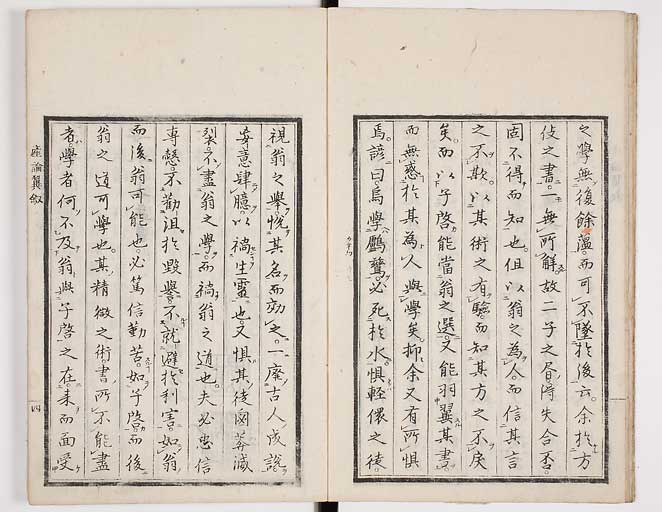 之學無復餘蘊而可不墜於後云余於方
伎之書一無所解故二子之書得失合否
固不得而知也但以翁之為人而信其言
之不欺以其術之有驗而知其方之不戾
矣而以子啓能當翁之選又能羽翼其書
而無惑於其為人與學矣抑余又有所懼
焉諺曰烏學鸕鶿必死於水懼輕儇之徒
視翁之舉悅其名而効之一廢古人成說
妄意肆臆以禍生靈也又懼其徒鹵莽滅
裂不盡翁之學而禍翁之道也夫必忠信
專愨不勸沮於毀譽不就避於利害如翁
而後翁可能也必篤信勤苦如子啓而後
翁之道可學也其精微之術書所不能盡
者學者何不及翁與子啓之在未而面受
產論翼叙
四